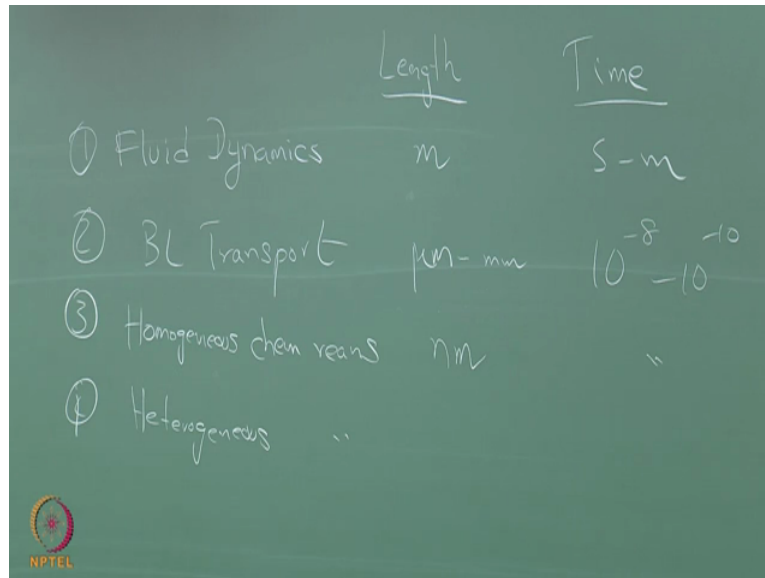 Length Time
① Fluid Dynamics m s - m
② BL Transport μm - mm 10⁻⁸ - 10⁻¹⁰
③ Homogeneous chem reans nm "
④ Heterogeneous "
NPTEL